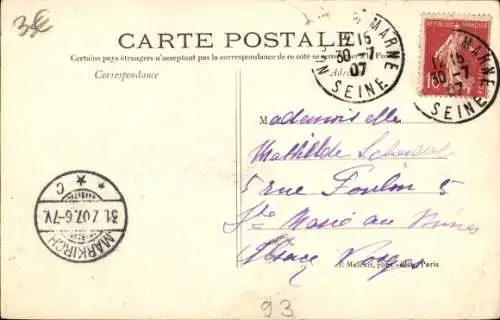 35€
CARTE POSTALE
Certains pays étrangers n'acceptant pas la correspondance de ce côté se
Correspondance
Adr
MARNE
12 15
30 -7
07
SEINE
REPUBLIQUE FRANÇAISE
10
MARNE
12 15
30 -7
07
SEINE
Mademoiselle
Mathilde
5 rue Foulon 5
Ste Marie aux Mines
Alsace Vosges
MARKIRCH
31.7.07.6-7V.
* * C
Paris
93